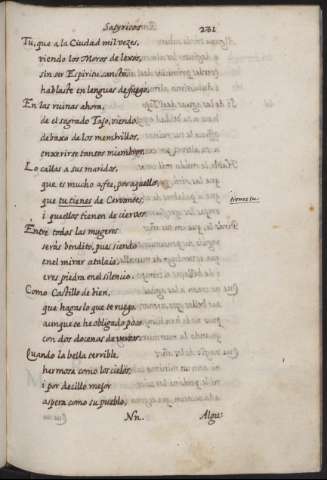 Satyricos.
231
Tu, que a la Ciudad mil vezes,
viendo los Moros de lexos,
sin ser Espiritu sancto,
hablaste en lenguas de fuego;
En las ruinas ahora,
de el sagrado Tajo, viendo
debaxo de los membrillos,
enxerirse tantos miembros,
Lo callas a sus maridos,
que es mucho a fee, por aquello,
que tu tienes de Cervantes,
tienes tu.
i quellos tienen de ciervos.
Entre todas las mugeres
seràs bendito, pues siendo
en el mirar atalaia,
eres piedra en el silencio.
Como Castillo de bien,
que hagas lo que te ruego,
aunque te he obligado poco
con dos docenas de versos.
Quando la bella terrible,
hermosa como los cielos,
i por decillo mejor
aspera como su pueblo,
Nn.
Algu-